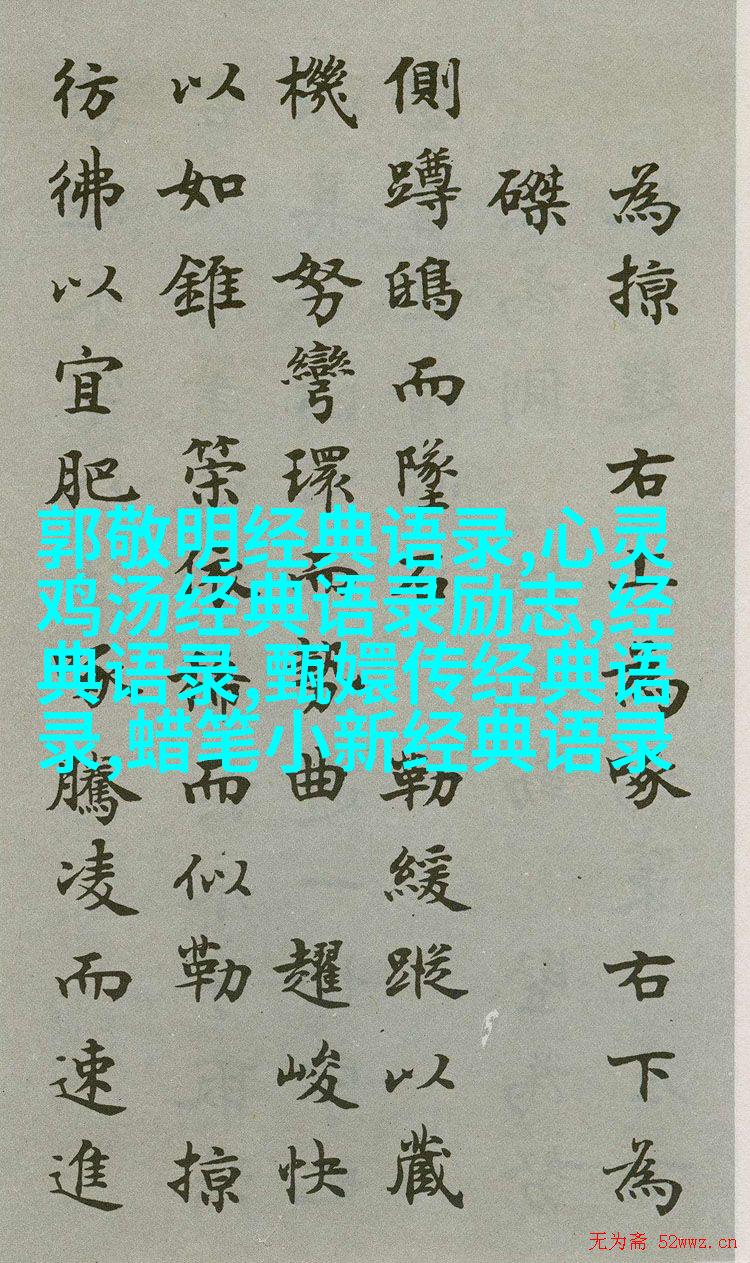 為掠 右上為啄 右下為
磔
側蹲鴟而墜石 勒緩蹤以藏
機 努彎環而勢曲 趯峻快
以如錐 策依稀而似勒 掠
彷彿以宜肥 啄騰凌而速進
郭敬明经典语录,心灵
鸡汤经典语录励志,经
典语录,甄嬛传经典语
录,蜡笔小新经典语录
无为斋 52wwz.cn